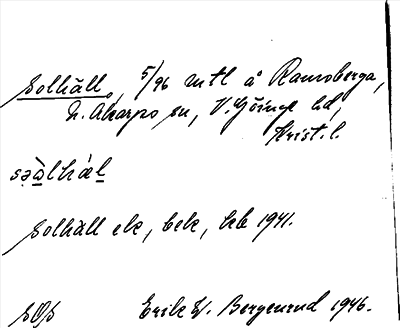 Solhäll, 5/96 mtl å Ramsberga,
N. Åkarps sn, V. Göinge hd,
Krist. l.
Solhäll ek, bek, kb 1941.
Erik W. Bergenrud 1946.